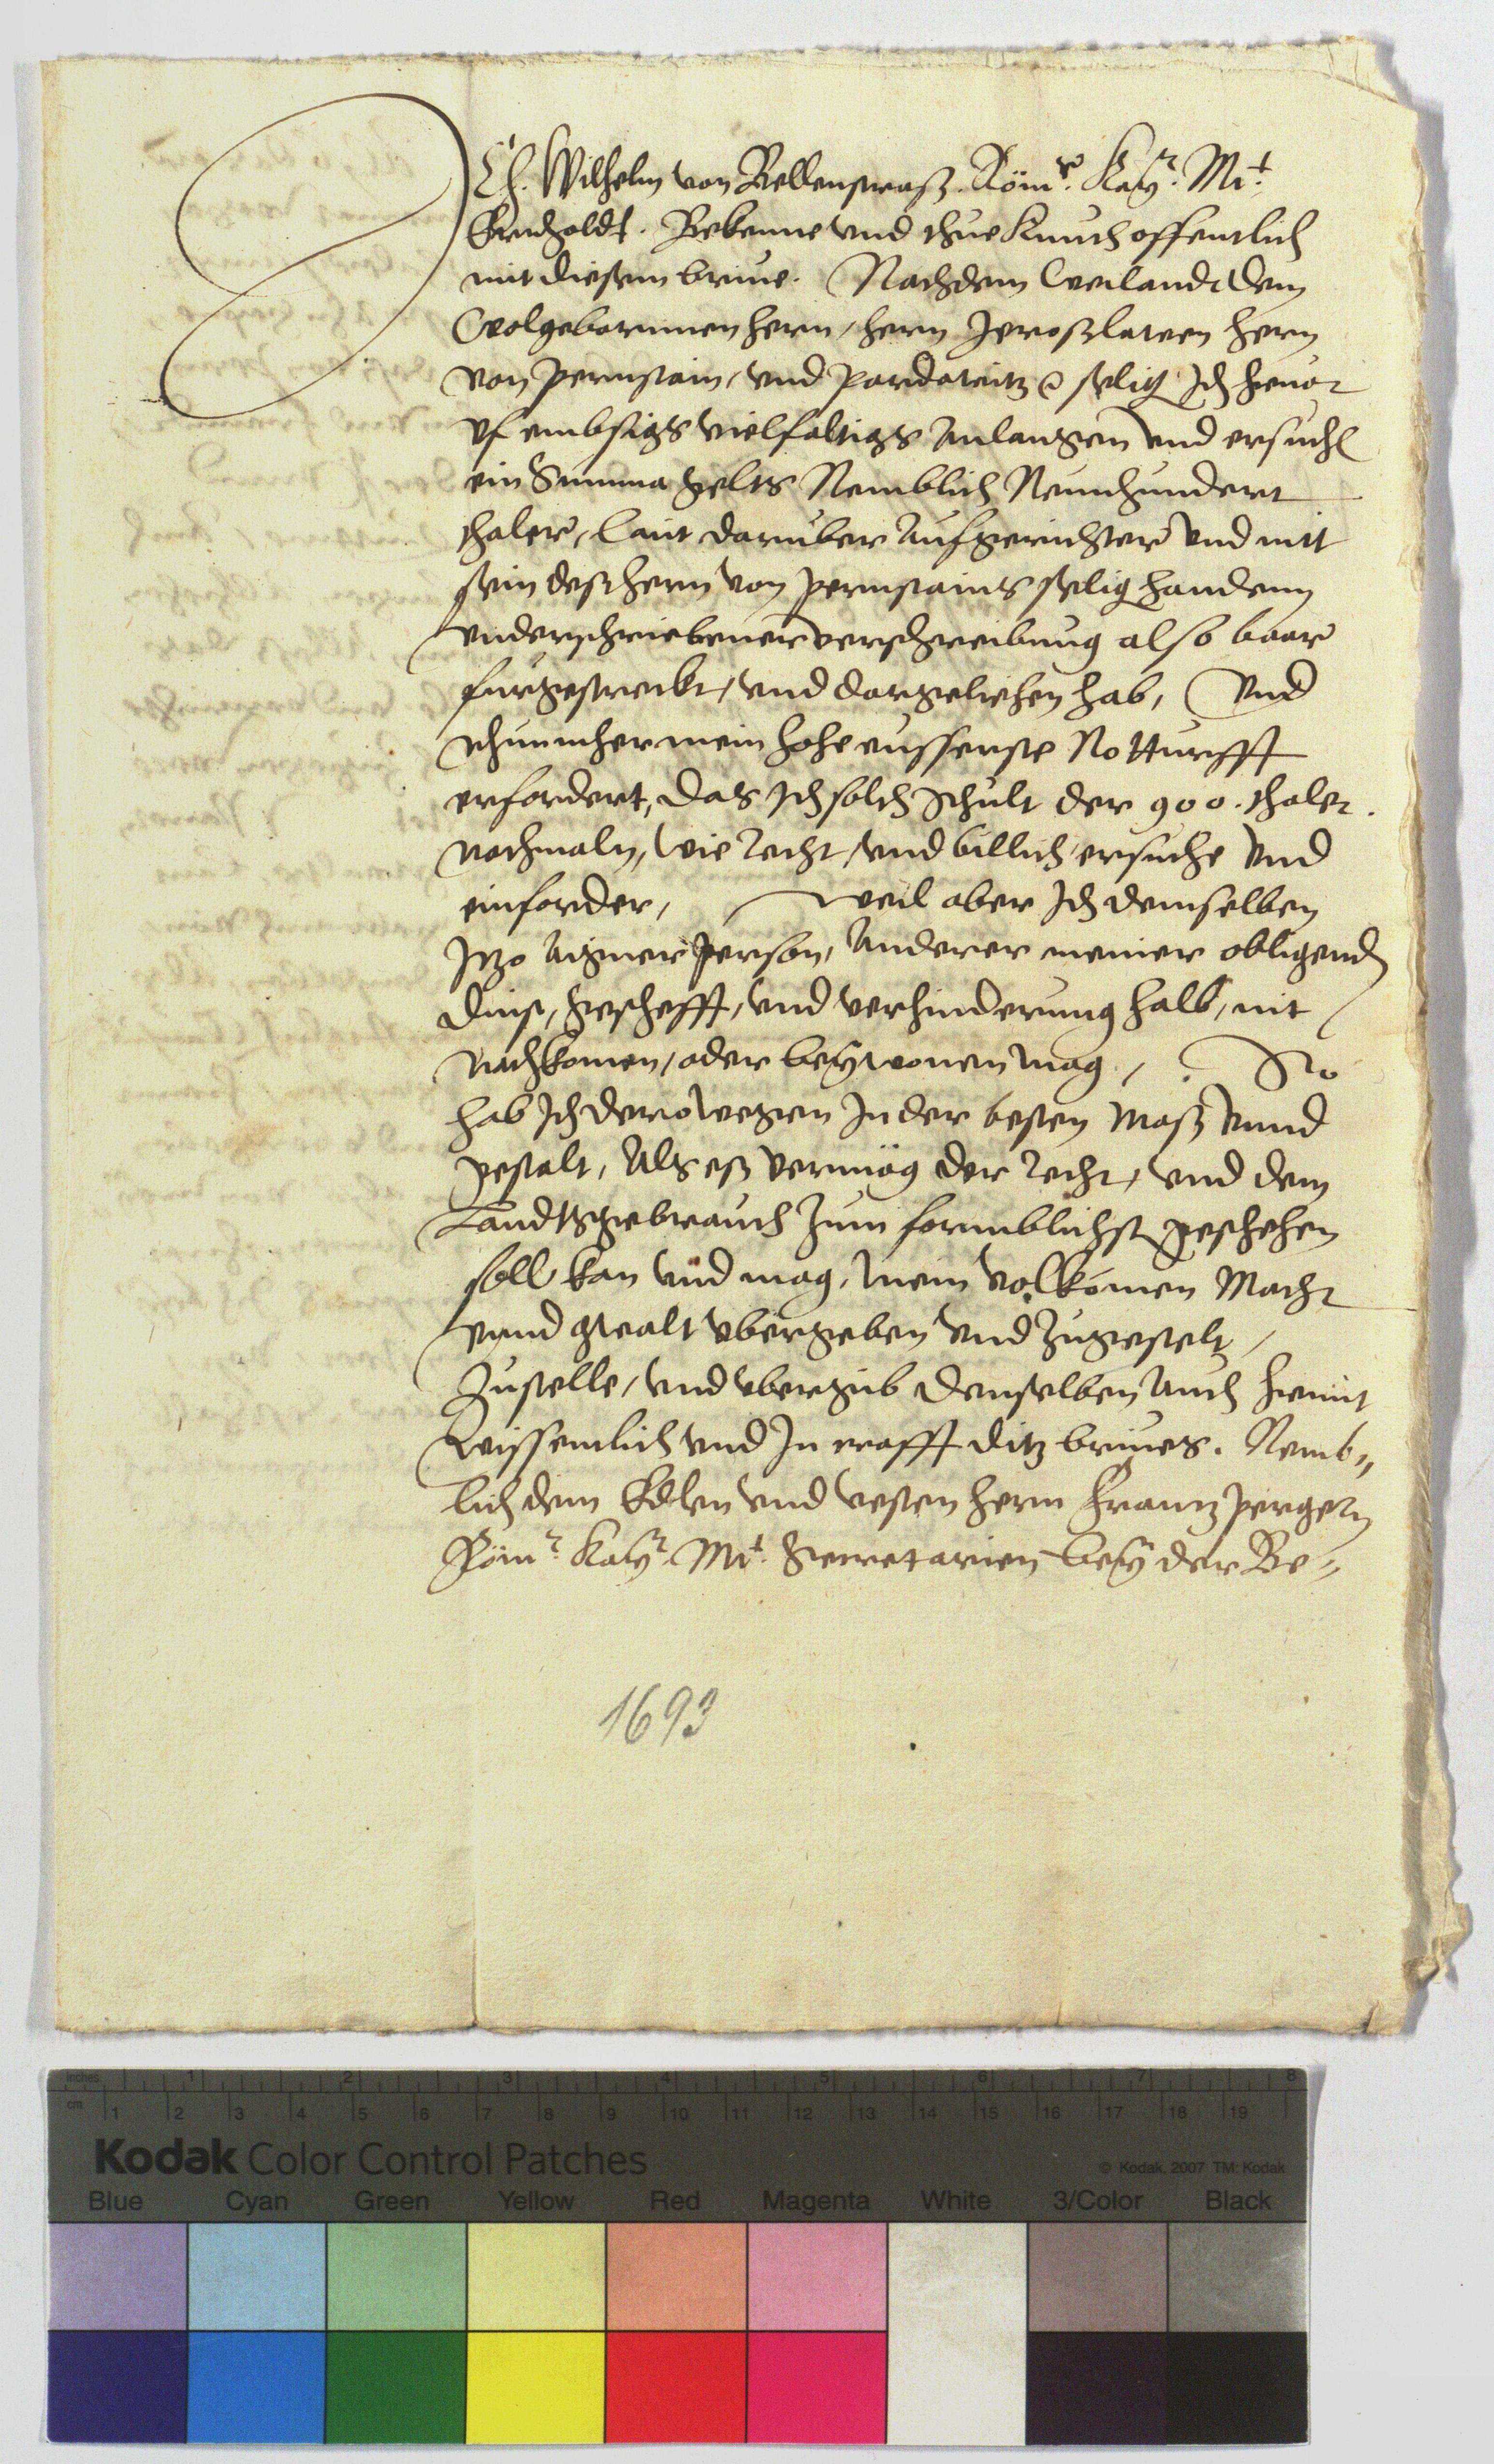 ICh Wilhelm von Bellenstraß. Röm:r Kay:r Mt:
Ernholdt. Bekenne vnd thue Kundt offentlich
mit diesem brieue. Nachdem Weilandt dem
Wolgebornnen herrn, herrn Jeroßlawen herrn
von Pernstain, vnd Pardawitz selig Ich hieuor
vf embsigs vielfaltigs Anlangen vnd ersuchen
ein Summa Gelts Nemblich Neunhundert
thaler, laut daruber Aufgerichter vnd mit
sein deß herrn von Pernstains selig handenn
vnderschriebener verschreibung also baar
furgestreckt, vnd dargeliehen hab, Vnd
mein hohe eusserste Notturfft
erfordert, das Ich solch Schult der 900. thaler.
nochmaln, wie Recht, vnd billich, ersuche vnd
einforder, Weil aber Ich demselben
Jtzo Aigner Person, Anderer meiner obligendenn
dinst, Gescheft, vnd verhinderung halb, nit
Nachkomen, oder beywonen mag, So
hab Ich derowegen In der besten Maß vnnd
gestalt, Als eß vermög der Recht, vnd dem
Landtsgebrauch zum formblichst geschehen
soll kan vnd mag, mein volkomen Macht
vnnd gwalt vbergeben vnd zugestelt,
Zustelle, vnd vbergib denselben Auch hiemit
Wissentlich vnd In crafft ditz brieues. Nemb„
lich dem Edlen vnd vesten herrn Frantz Pergern
Röm:r Kay:r Mt: Secretarien bey der Be„
1693
inches 1 2 3 4 5 6 7 8
cm 1 2 3 4 5 6 7 8 9 10 11 12 13 14 15 16 17 18 19
Kodak Color Control Patches
© Kodak, 2007 TM: Kodak
Blue Cyan Green Yellow Red Magenta White 3/Color Black